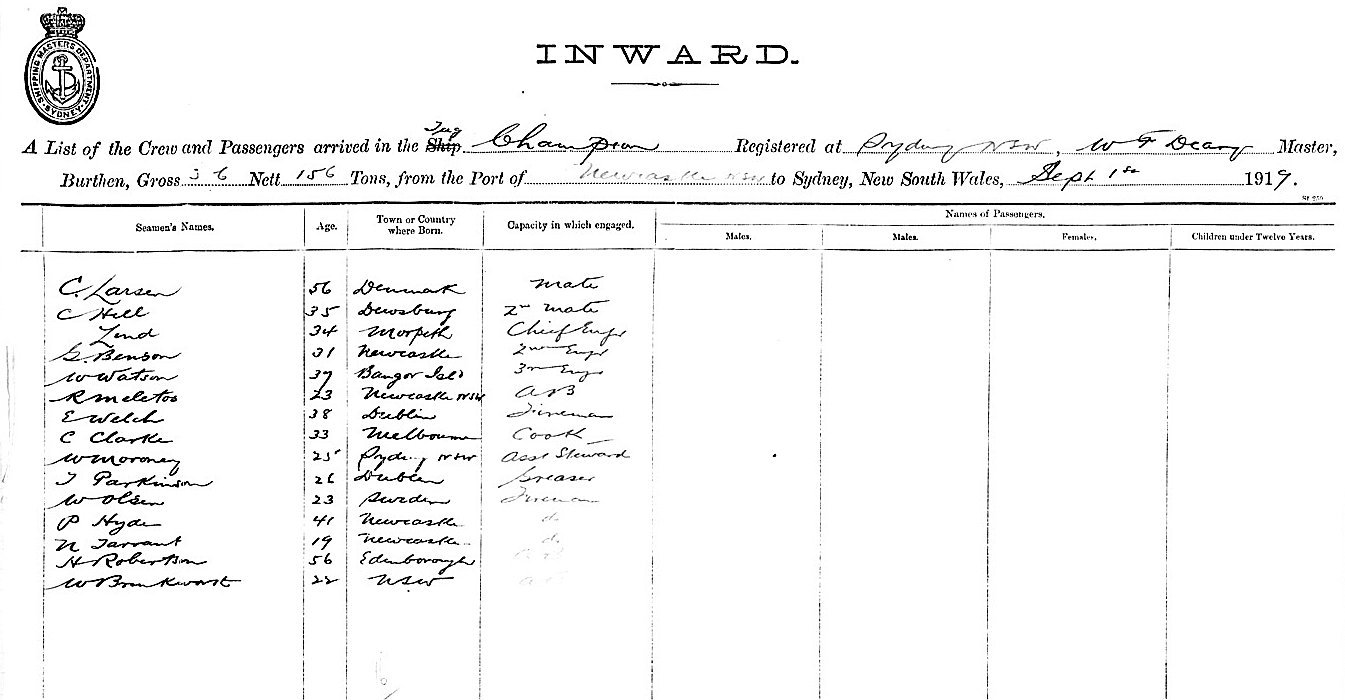 SHIPPING MASTERS DEPARTMENT. SYDNEY.
INWARD.
A List of the Crew and Passengers arrived in the Ship Tug Champion Registered at Sydney NSW, W F Deary Master,
Burthen, Gross 36 Nett 156 Tons, from the Port of Newcastle NSW to Sydney, New South Wales, Sept 1st 1919.
Seamen's Names. Age. Town or Country where Born. Capacity in which engaged. Names of Passengers.
Males. Males. Females. Children under Twelve Years.
C. Larsen 56 Denmark Mate
C Hill 35 Dewsbury 2nd Mate
Lind 34 Morpeth Chief Engr
G. Benson 31 Newcastle 2nd Engr
W Watson 37 Bangor Isld 3rd Engr
R Meletos 23 Newcastle NSW AB
E Welch 38 Dublin Fireman
C Clarke 33 Melbourne Cook
W Moroney 25 Sydney NSW Asst Steward
T Parkinson 26 Dublin Greaser
W Olsen 23 Sweden Fireman
P Hyde 41 Newcastle do
N Tarrant 19 Newcastle do
H Robertson 56 Edenborough
W 22 NSW